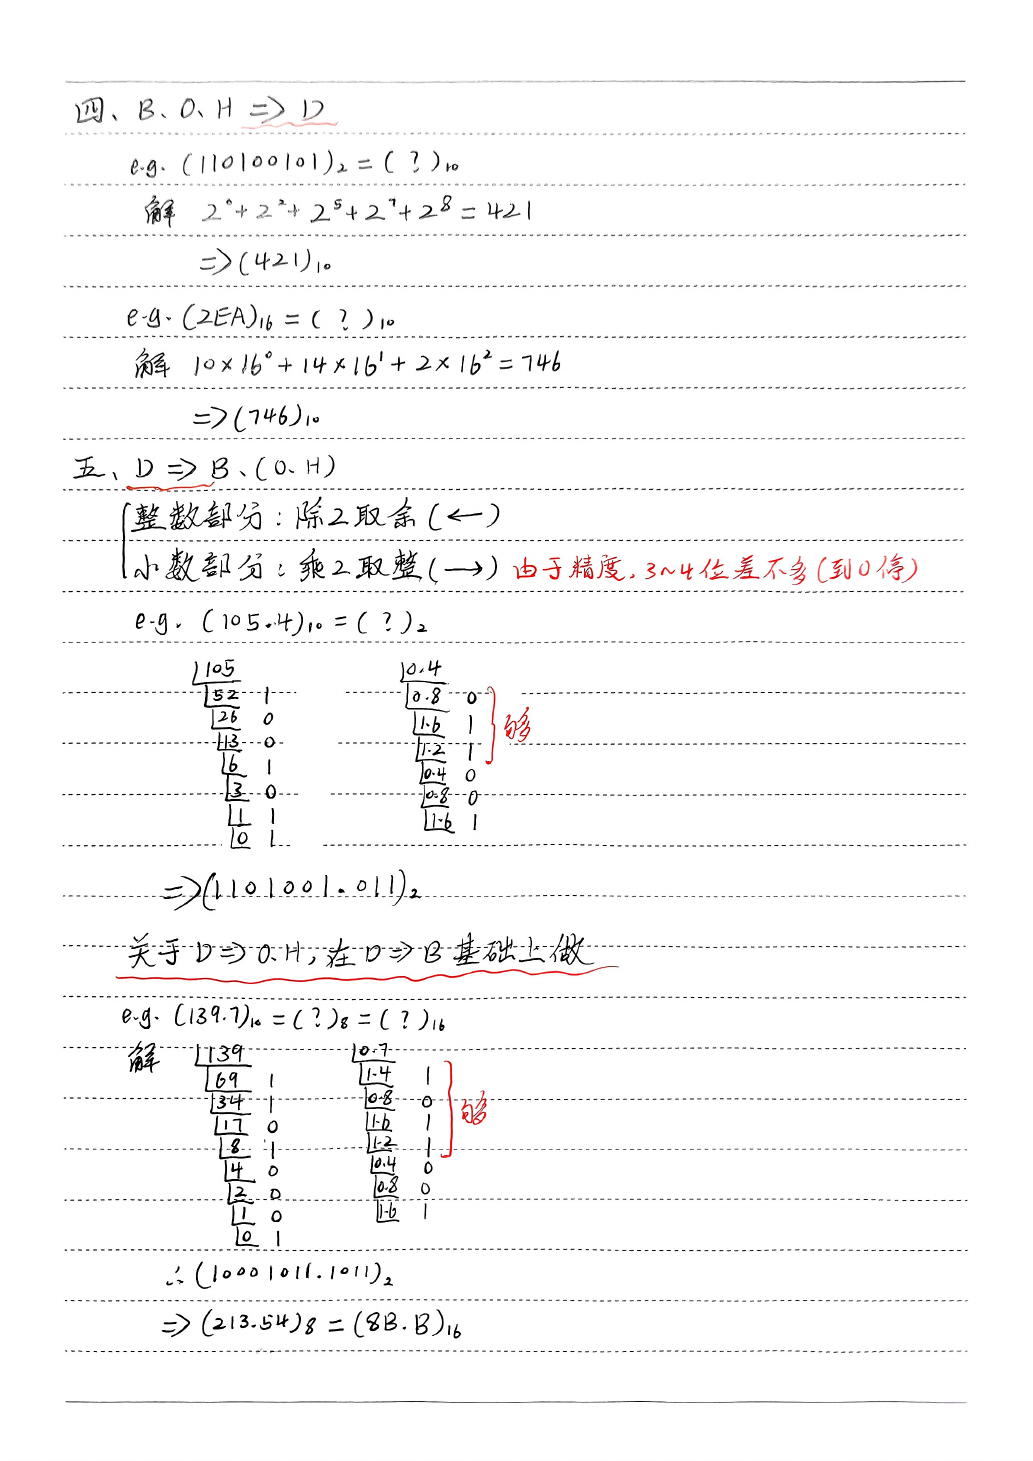 四、B、O、H => D
e.g. (110100101)₂ = ( ? )₁₀
解 2⁰+2²+2⁵+2⁷+2⁸=421
=>(421)₁₀
e.g. (2EA)₁₆ = ( ? )₁₀
解 10×16⁰+14×16¹+2×16²=746
=>(746)₁₀
五、D => B、(O、H)
整数部分：除2取余(←)
小数部分：乘2取整(→) 由于精度，3~4位差不多(到0停)
e.g. (105.4)₁₀ = ( ? )₂
105 0.4
52 1 0.8 0
26 0 1.6 1 够
13 0 1.2 1
6 1 0.4 0
3 0 0.8 0
1 1 1.6 1
0 1
=>(1101001.011)₂
关于D=>O、H，在D=>B基础上做
e.g. (139.7)₁₀ = ( ? )₈ = ( ? )₁₆
解 139 0.7
69 1 1.4 1
34 1 0.8 0 够
17 0 1.6 1
8 1 1.2 1
4 0 0.4 0
2 0 0.8 0
1 0 1.6 1
0 1
∴(10001011.1011)₂
=>(213.54)₈ = (8B.B)₁₆